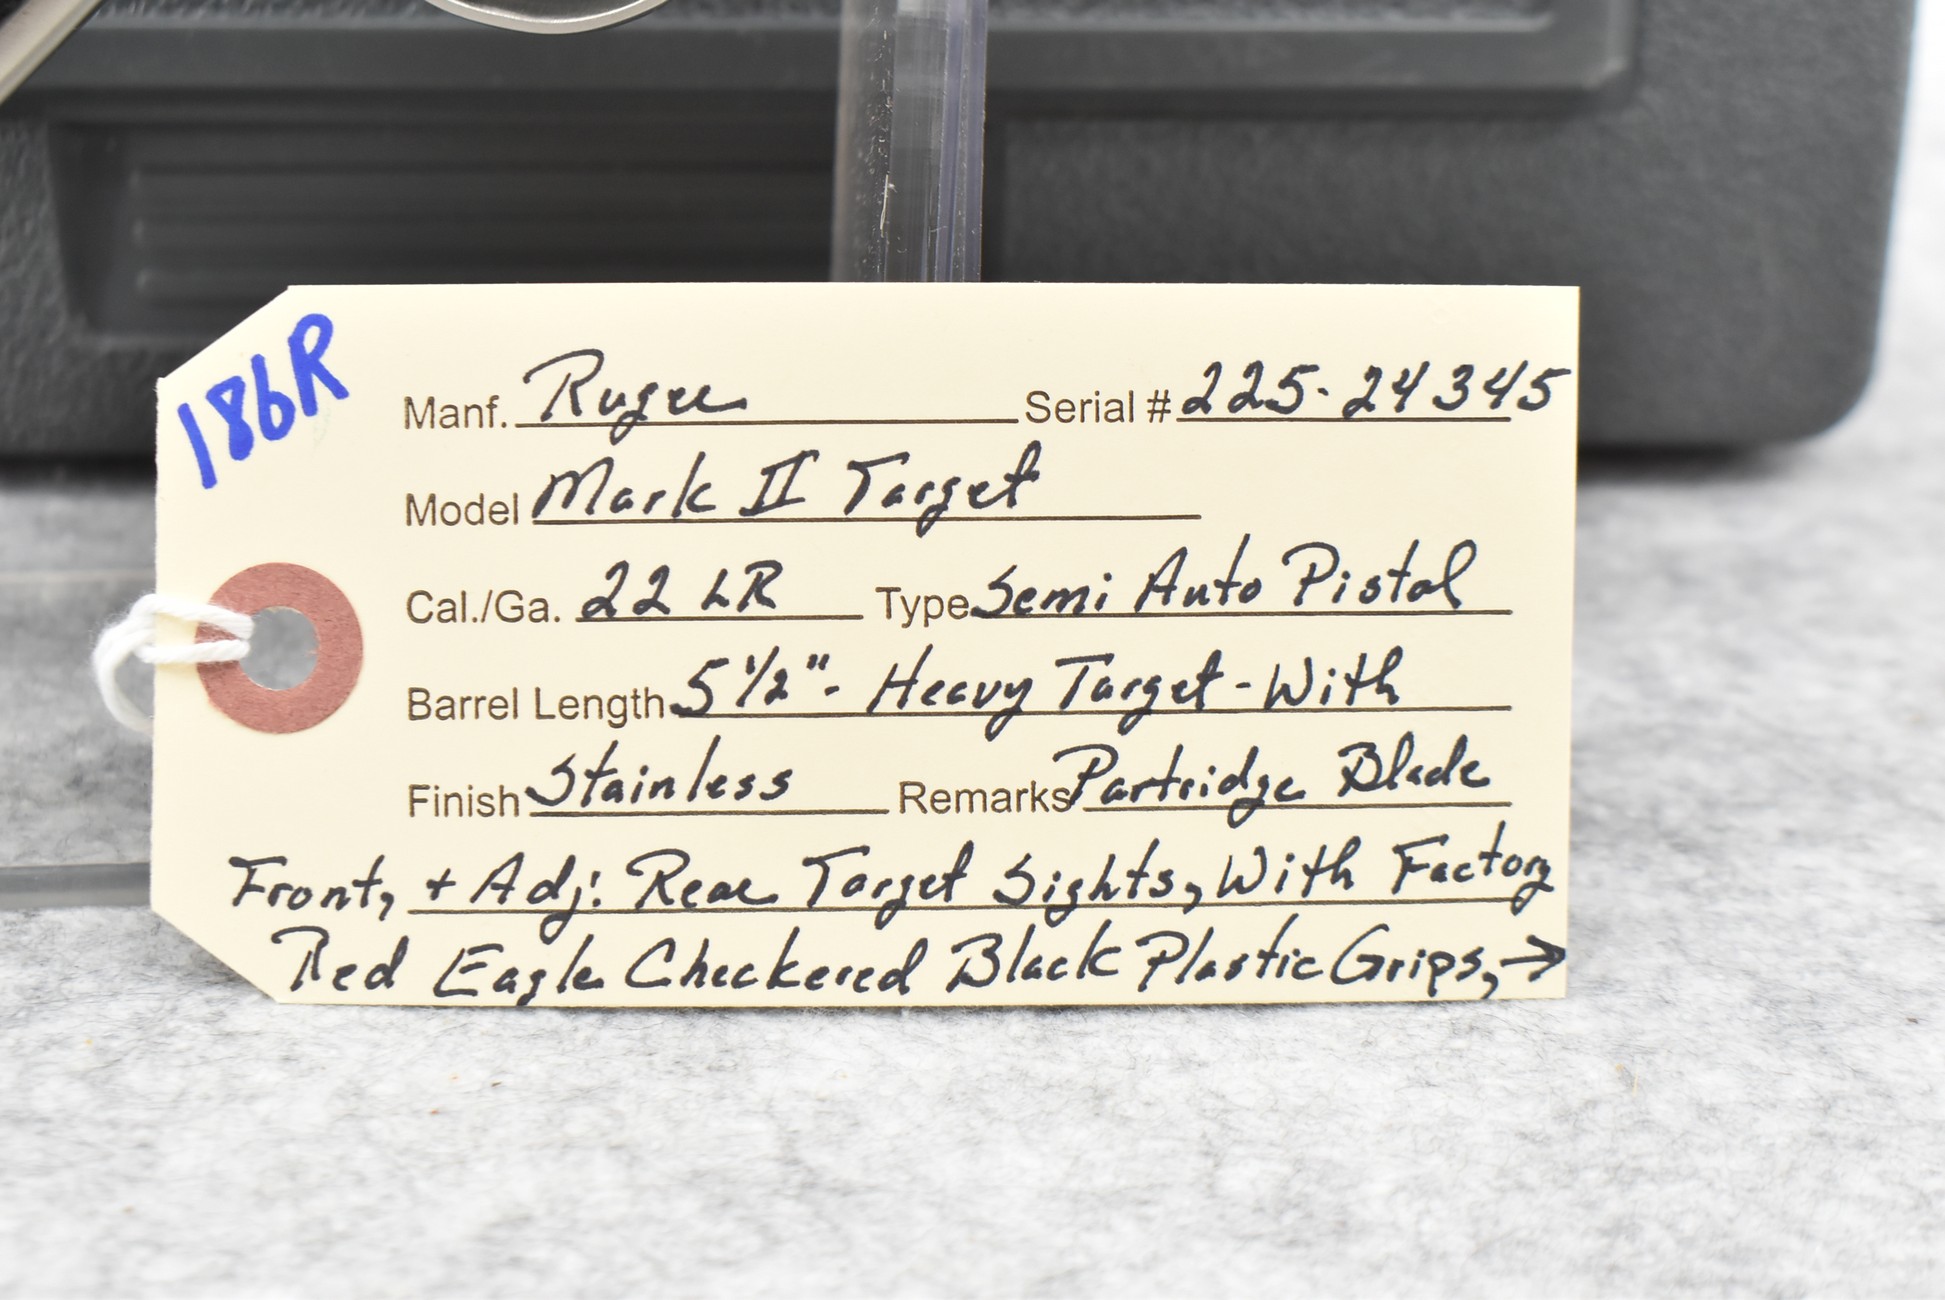 186R
Manf. Ruger Serial # 225-24345
Model Mark II Target
Cal./Ga. 22 LR Type Semi Auto Pistol
Barrel Length 5 1/2"- Heavy Target - With
Finish Stainless Remarks Partridge Blade
Front, + Adj. Rear Target Sights, With Factory
Red Eagle Checkered Black Plastic Grips, →